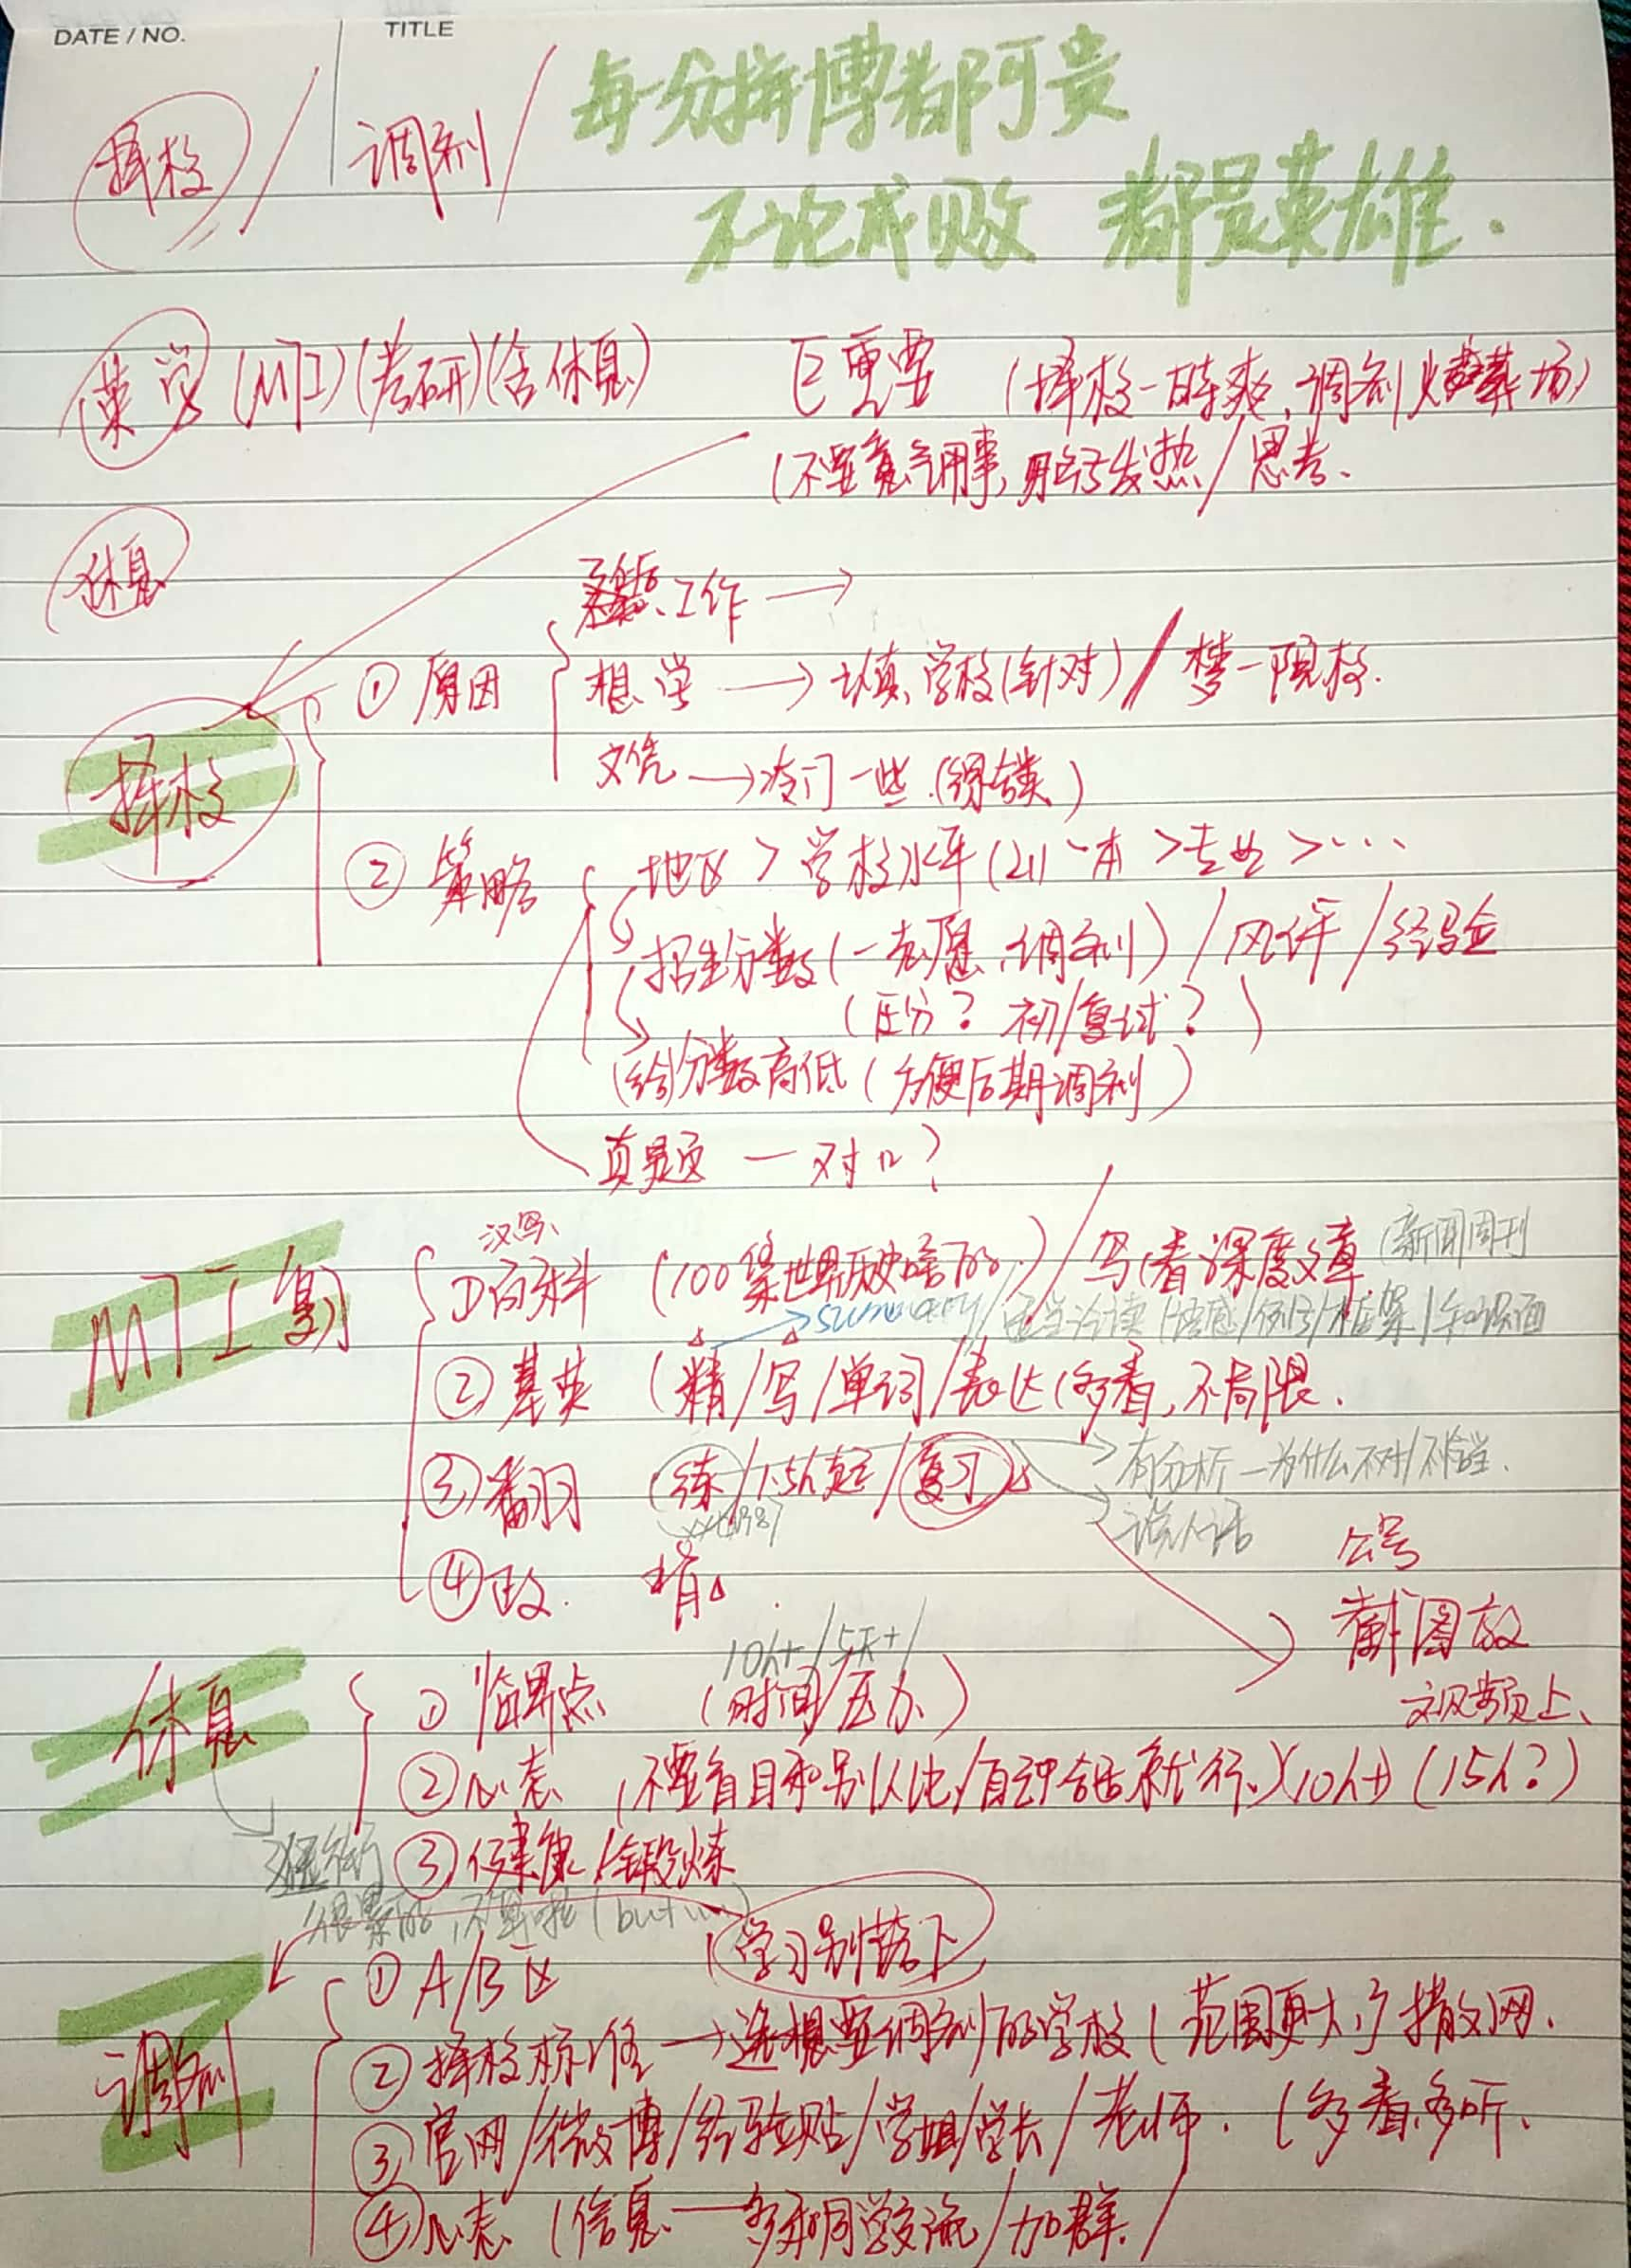 DATE / NO.
TITLE
择校 / 调剂 /
每分拼搏都可贵
不论成败 都是英雄.
英学 (MTI)(考研)(含休息) 巨重要 (择校一时爽,调剂火葬场)
(不要意气用事,发热/思考.
休息
工作 →
① 原因 想学 → 认真、学校(针对) / 梦一院校.
文凭 → 冷门一些.
择校
② 策略 地区 > 学校水平 (211 一本 > 专业 > ...
招生分数 (一志愿、调剂) / 风评 / 经验
(压分? 初/复试?)
(给)分数高低 (方便后期调剂)
真题 一 对口?
MTI 复习
汉写、
①百科 (100 集世界历史啥的..) / 写(看深度文章 (新闻周刊
summary / 语感/例子/框架/知识面
② 基英 (精/写/单词/表达(多看,不局限.
③ 翻 (练/1.5h起/复习
有分析 — 为什么不对/不恰当.
说人话
④ 政. 肖
公号
截图放
视频上、
休息
10h+ / 5天+ /
① 临界点 (时间/压力.)
② 心态 (不要盲目和别人比/自己合适就行.)(10h+) (15h?)
逛街
③ 健康/锻炼
很累的,不算啥 (but
(学习别落下
调剂
① A/B 区
② 择校标准 → 选想要调剂的学校 (范围更大了 撒网.
③ 官网/微博/经验贴/学姐/学长/老师. (多看、多听、
④ 心态 (信息 — 多和同学交流/加群.)